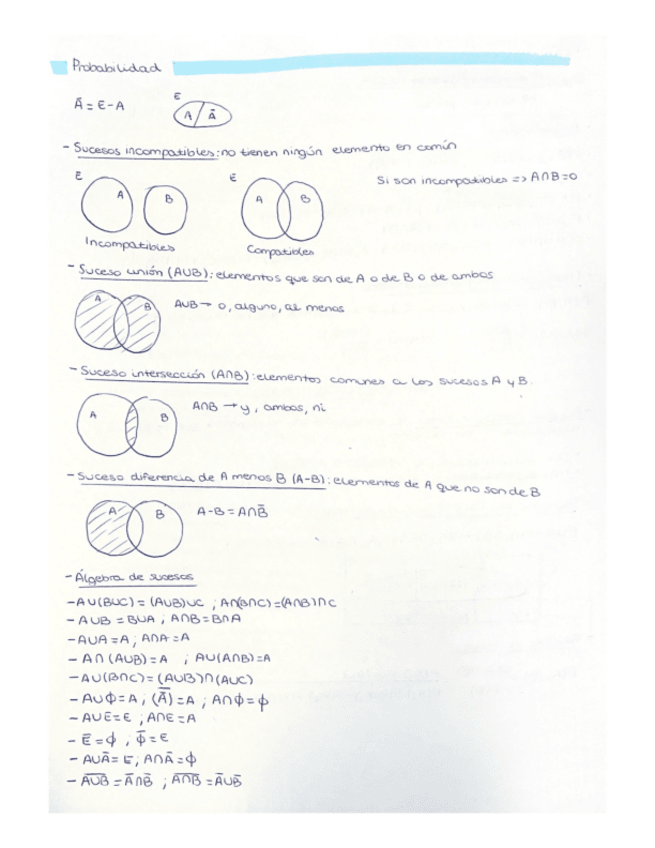 Probabilidad
Ā = E - A
E
A / Ā
- Sucesos incompatibles: no tienen ningún elemento en común
E A B
E A B
Si son incompatibles => A∩B=0
Incompatibles
Compatibles
- Suceso unión (AUB): elementos que son de A o de B o de ambos
A B
AUB → o, alguno, al menos
- Suceso intersección (A∩B): elementos comunes a los sucesos A y B.
A B
A∩B → y, ambos, ni
- Suceso diferencia de A menos B (A-B): elementos de A que no son de B
A B
A-B = A∩B̄
- Álgebra de sucesos
- AU(BUC) = (AUB)UC ; A∩(B∩C)=(A∩B)∩C
- AUB = BUA ; A∩B = B∩A
- AUA = A ; A∩A = A
- A∩(AUB)=A ; AU(A∩B)=A
- AU(B∩C) = (AUB)∩(AUC)
- AUϕ=A ; (Ā)̄ = A ; A∩ϕ = ϕ
- AUE = E ; A∩E = A
- Ē = ϕ ; ϕ̄ = E
- AUĀ = E, A∩Ā = ϕ
- A̅U̅B̅ = Ā∩B̄ ; A̅∩̅B̅ = ĀUB̄